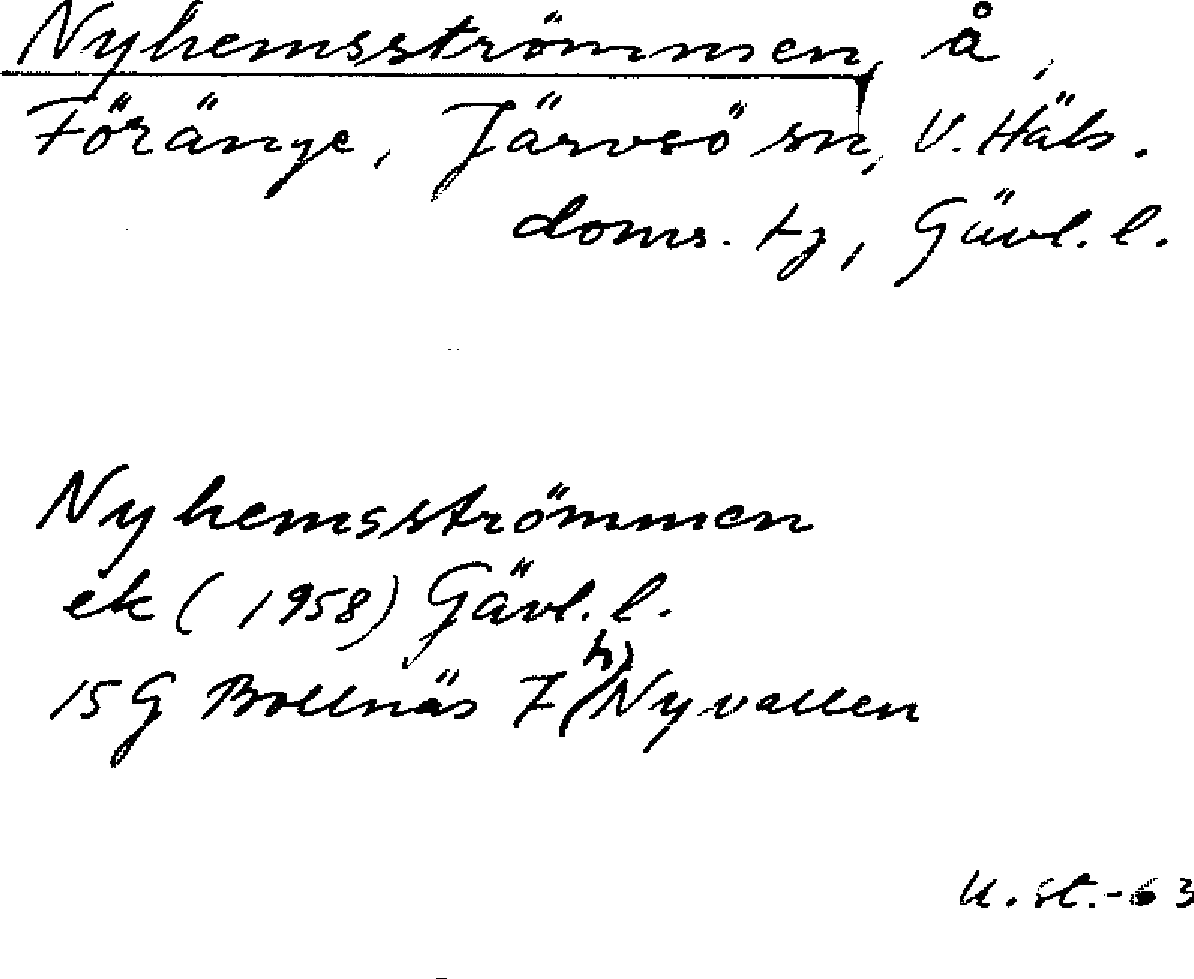 Nyhemsströmmen, å,
Föränge, Järvsö sn, V. Häls.
doms. tg, Gävl. l.
Nyhemsströmmen
ek (1958) Gävl. l.
15G Bollnäs 7 h) Nyvallen
U. St.-63